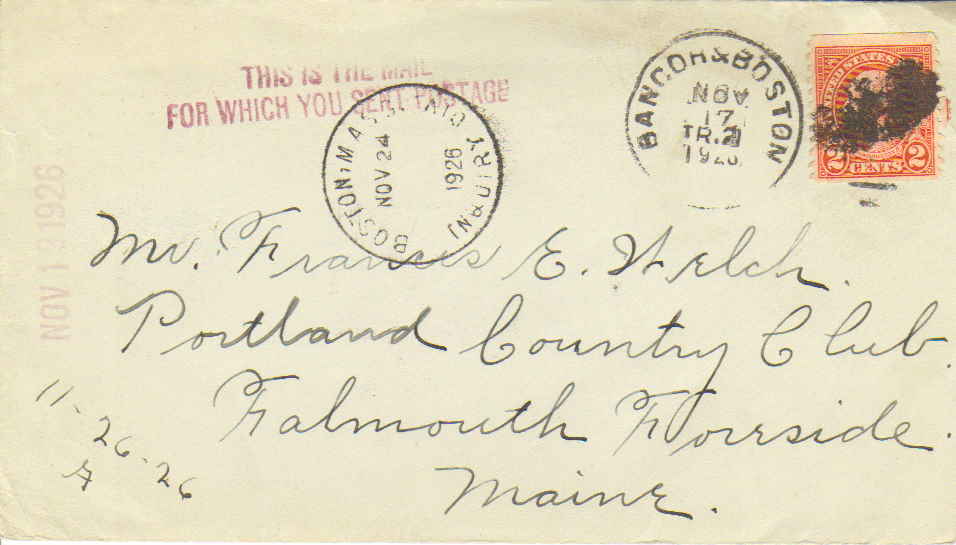 THIS IS THE MAIL
FOR WHICH YOU SENT POSTAGE
BOSTON, MASS.
NOV 24
1926
INQUIRY DIV.
BANGOR & BOSTON
NOV
17
TR. 2
1926
UNITED STATES
2 CENTS 2
NOV 13 1926
Mr. Francis E. Welch.
Portland Country Club.
Falmouth Foreside.
Maine.
11-26-26